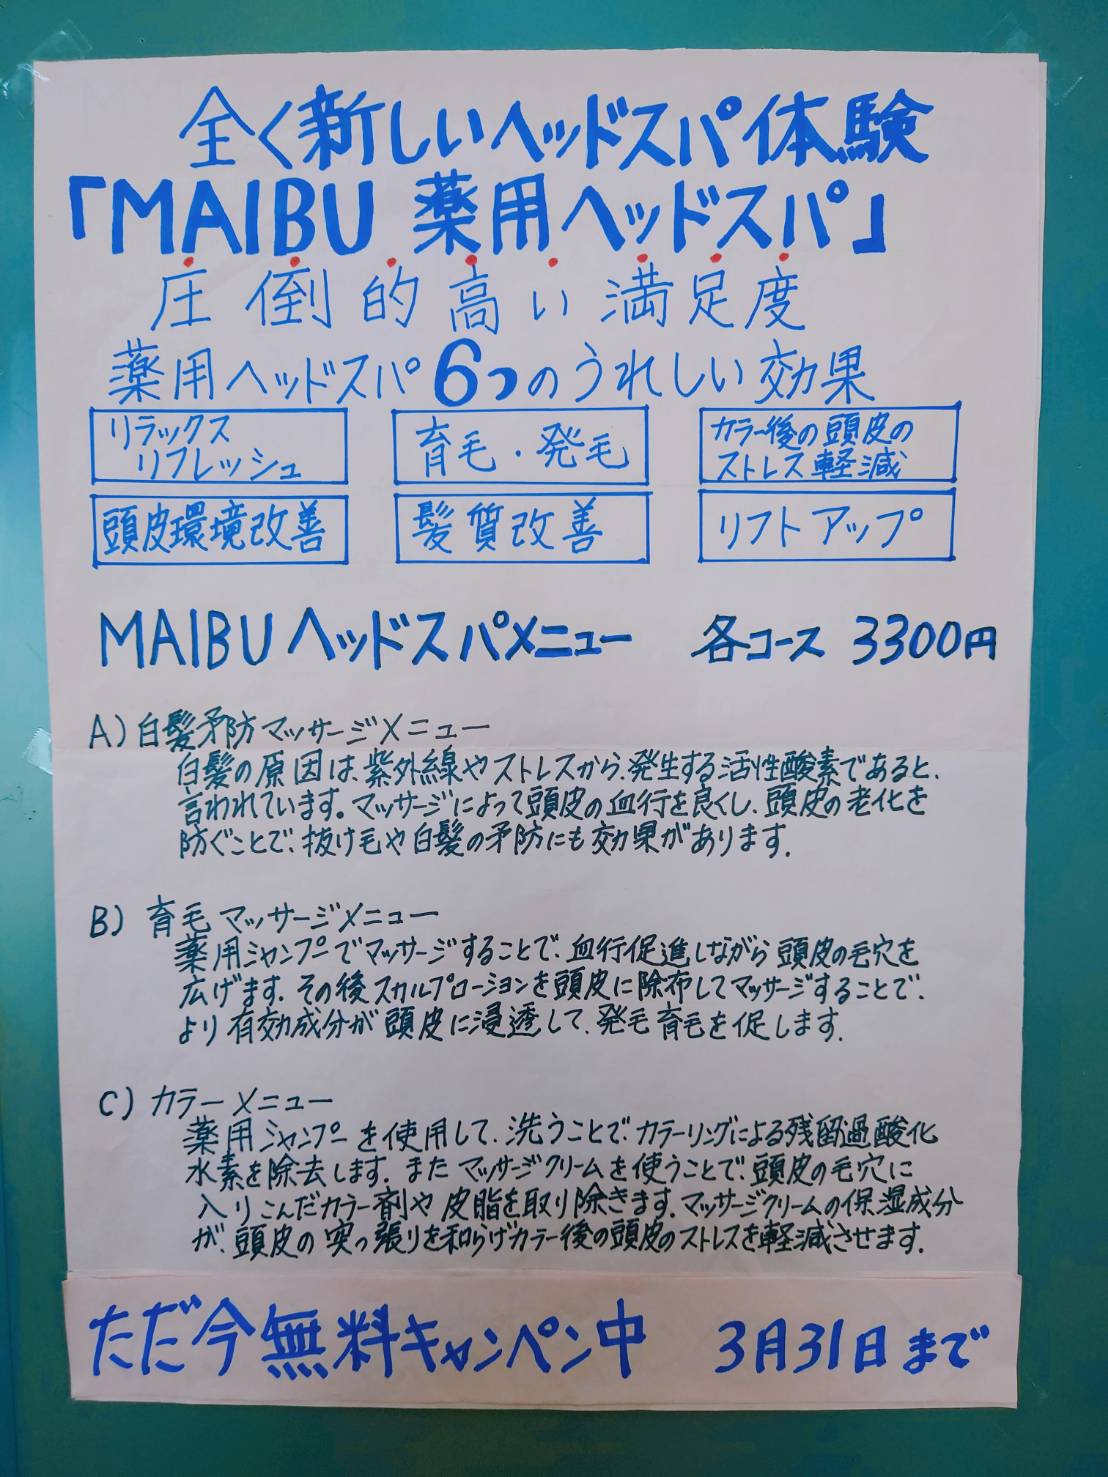 全く新しいヘッドスパ体験
「MAIBU 薬用ヘッドスパ」
圧倒的高い満足度
薬用ヘッドスパ6つのうれしい効果
リラックス
リフレッシュ
育毛・発毛
カラー後の頭皮の
ストレス軽減
頭皮環境改善
髪質改善
リフトアップ
MAIBUヘッドスパメニュー 各コース 3300円
A) 白髪予防マッサージメニュー
白髪の原因は、紫外線やストレスから、発生する活性酸素であると、
言われています。マッサージによって頭皮の血行を良くし、頭皮の老化を
防ぐことで、抜け毛や白髪の予防にも効果があります。
B) 育毛マッサージメニュー
薬用シャンプーでマッサージすることで、血行促進しながら頭皮の毛穴を
広げます。その後スカルプローションを頭皮に除布してマッサージすることで、
より有効成分が頭皮に浸透して、発毛育毛を促します。
C) カラーメニュー
薬用シャンプーを使用して、洗うことで、カラーリングによる残留過酸化
水素を除去します。またマッサージクリームを使うことで、頭皮の毛穴に
入りこんだカラー剤や皮脂を取り除きます。マッサージクリームの保湿成分
が、頭皮の突っ張りを和らげカラー後の頭皮のストレスを軽減させます。
ただ今無料キャンペン中 3月31日まで